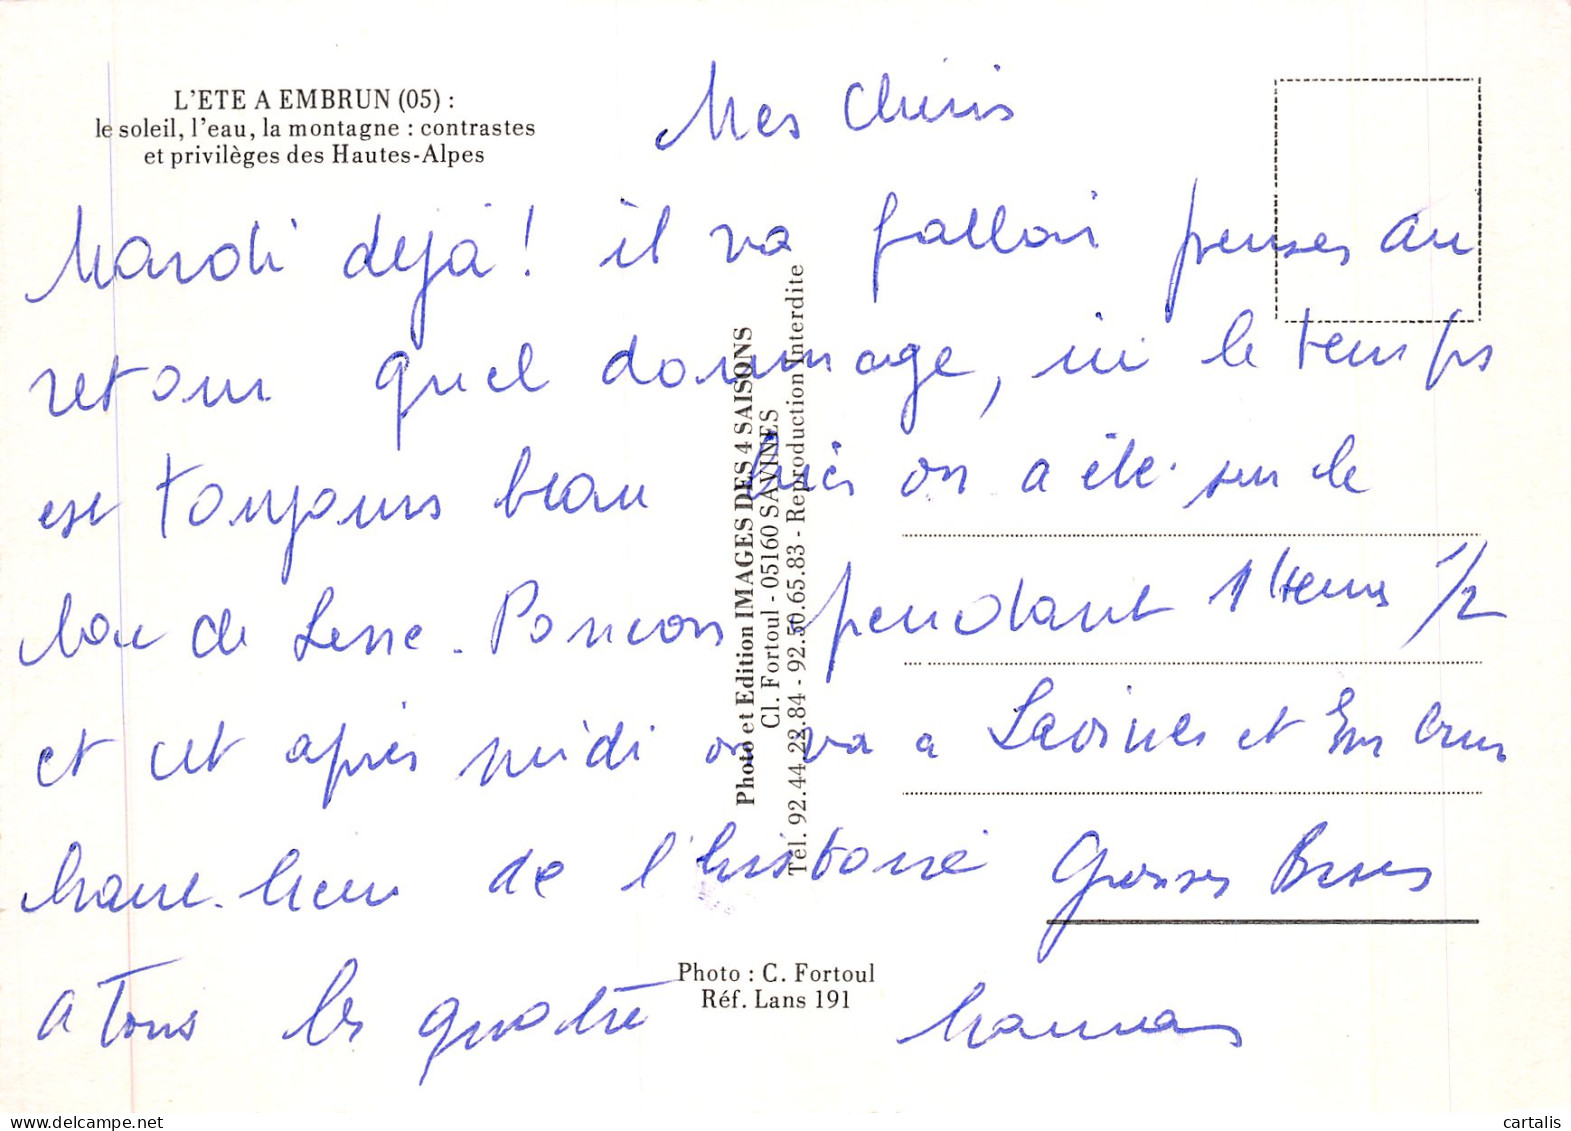 L'ETE A EMBRUN (05) :
le soleil, l'eau, la montagne : contrastes
et privilèges des Hautes-Alpes
Mes Chéris
Mardi dejà! il va falloir penser au
retour quel dommage, ici le temps
est toujours beau hier on a été sur le
lac de Serre-Poncon pendant 1 Heure 1/2
et cet après midi on va a Savines et Embrun
haut-lieu de l'histoire Grosses Bises
a Tous les quatre
Maman
Photo et Edition IMAGES DES 4 SAISONS
Cl. Fortoul - 05160 SAVINES
Tél. 92.44.22.84 - 92.50.65.83 - Reproduction Interdite
Photo : C. Fortoul
Réf. Lans 191
cartalis